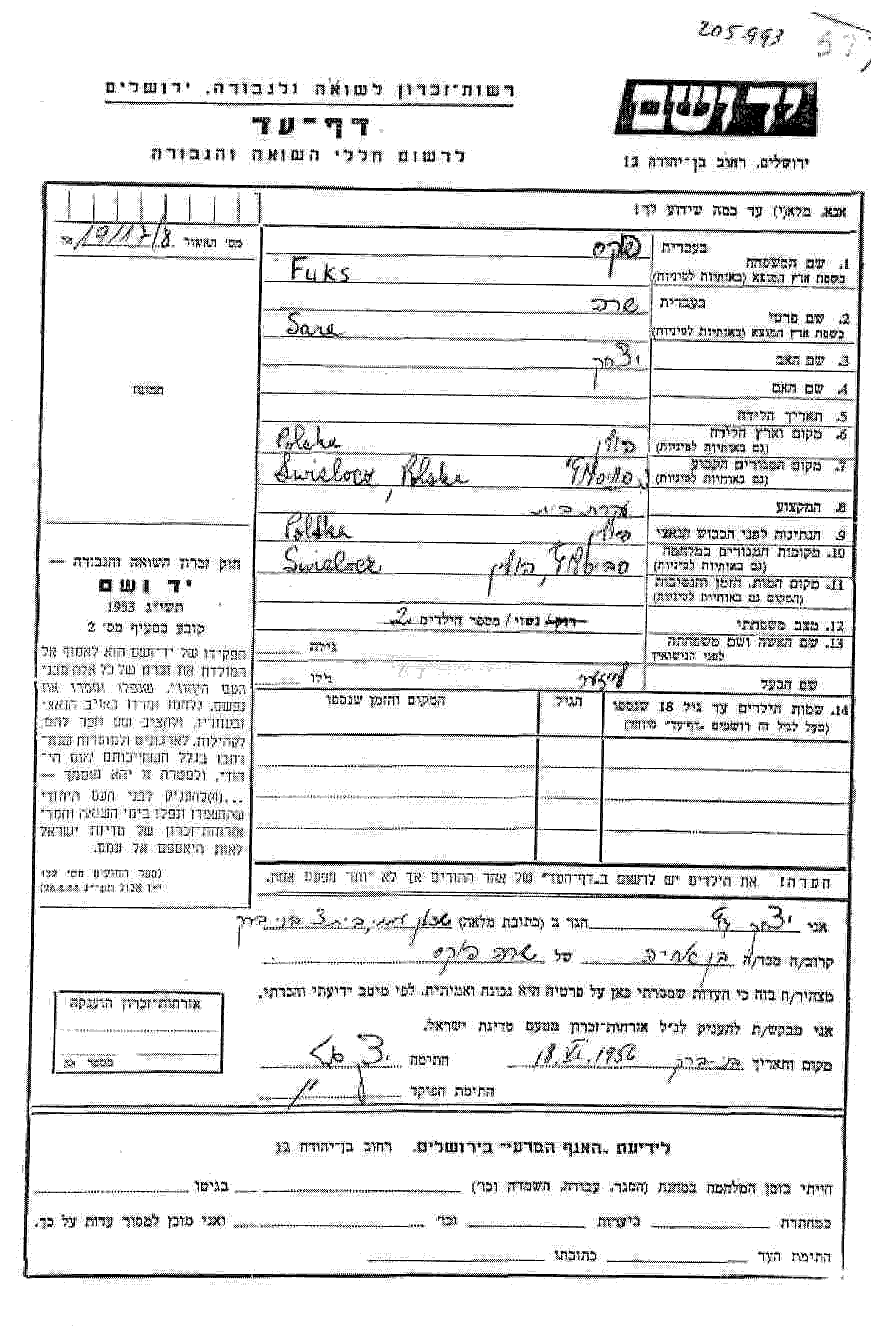 205993
רשות-זכרון לשואה ולגבורה, ירושלים
יד ושם
דף-עד
לרשום חללי השואה והגבורה
ירושלים, רחוב בן-יהודה 12
אנא, מלא(י) עד כמה שידוע לך!
1. שם המשפחה
בעברית
פוקס
בשפת ארץ המוצא (באותיות לטיניות)
Fuks
2. שם פרטי
בעברית
שרה
בשפת ארץ המוצא (באותיות לטיניות)
Sara
3. שם האב
יצחק
4. שם האם
5. תאריך הלידה
6. מקום וארץ הלידה
(גם באותיות לטיניות)
פולין
Polska
7. מקום המגורים הקבוע
(גם באותיות לטיניות)
Swislocz, Polska
8. המקצוע
עקרת בית
9. הנתינות לפני הכבוש הנאצי
פולין
Polska
10. מקומות המגורים במלחמה
(גם באותיות לטיניות)
פולין
Swislocz
11. מקום המות, הזמן והנסיבות
(המקום גם באותיות לטיניות)
12. מצב משפחתי
רווק/ נשוי/ מספר הילדים 2
13. שם האשה ושם משפחתה
לפני הנישואין
גילה
שם הבעל
גילו
14. שמות הילדים עד גיל 18 שנספו
(מעל לגיל זה רושמים "דף-עד" מיוחד)
הגיל
המקום והזמן שנספו
תמונה
חוק זכרון השואה והגבורה —
יד ושם
תשי"ג 1953
קובע בסעיף מס' 2
תפקידו של יד-ושם הוא לאסוף אל
המולדת את זכרם של כל אלה מבני
העם היהודי, שנפלו ומסרו את
נפשם, נלחמו ומרדו באויב הנאצי
ובעוזריו, ולהציב שם וזכר להם,
לקהילות, לארגונים ולמוסדות שנח-
רבו בגלל השתייכותם לעם הי-
הודי, ולמטרה זו יהא מוסמך —
...(4) להעניק לבני העם היהודי
שהושמדו ונפלו בימי השואה והמרי
אזרחות-זכרון של מדינת ישראל
לאות היאספם אל עמם.
הערה! את הילדים יש לרשום ב"דף-העד" של אחד ההורים אך לא יותר מפעם אחת.
אני יצחק
הגר ב (כתובת מלאה) בני ברק
קרוב/ה מכר/ה בן אחיה של שרה פוקס
מצהיר/ה בזה כי העדות שמסרתי כאן על פרטיה היא נכונה ואמיתית, לפי מיטב ידיעתי והכרתי.
אני מבקש/ת להעניק לנ"ל אזרחות-זכרון מטעם מדינת ישראל.
מקום ותאריך בני-ברק 18.VI.1956 חתימה
חתימת הפוקד
אזרחות-זכרון הוענקה
לידיעת "האגף המדעי" בירושלים, רחוב בן-יהודה 12
הייתי בזמן המלחמה במחנה (הסגר, עבודה, השמדה וכו') בגיטו
במחתרת ביערות וכו' ואני מוכן למסור עדות על כך.
חתימת העד כתובתו